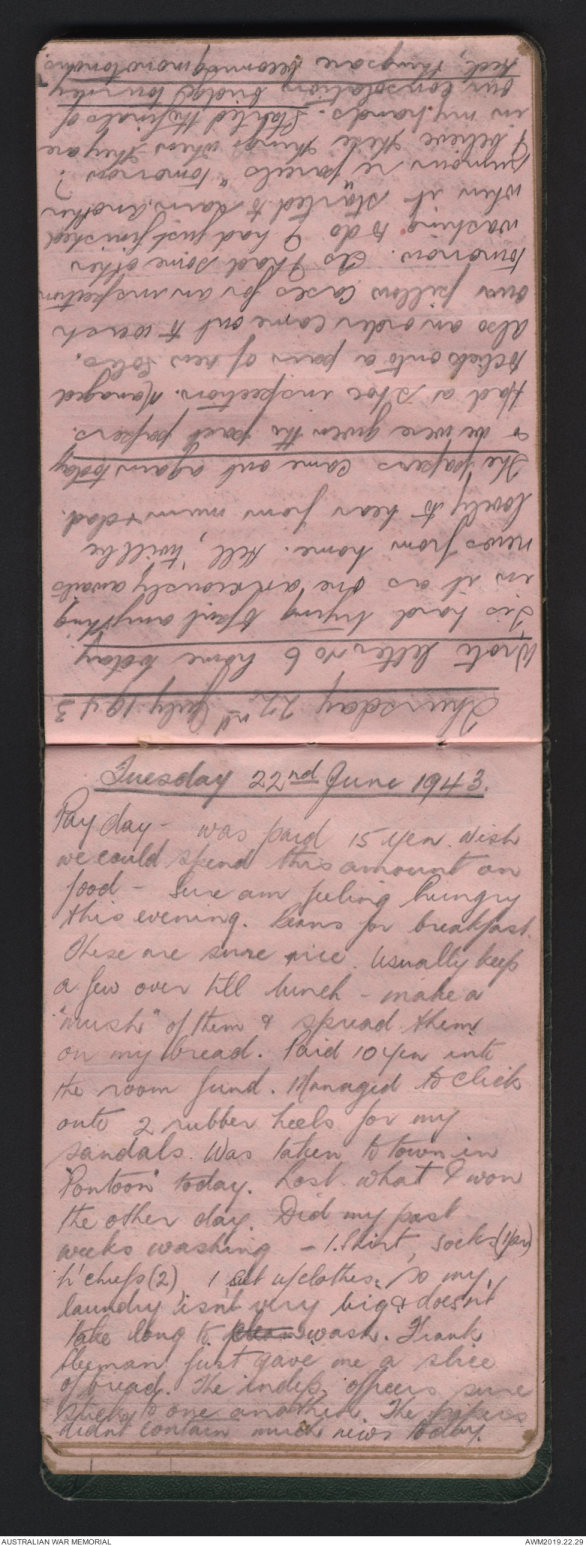 Thursday 22nd July 1943
Wrote letter no 6 home today.
Tis hard trying to fait anything
in it as one anxiously awaits
news from home. Hell, 'twill be
lovely to hear from mum & dad.
The papers came out again today
& we were given the past papers.
Had a shoe inspection. Managed
to click onto a pair of new soles.
Also an order came out to wash
our pillow cases for an inspection
tomorrow. As I had some other
washing to do I had just finished
when it started to rain. Another
rumour re parcels "tomorrow"?
I believe these things when they are
in my hands. Started the finals of
our consolation bridge tourney
ted, things are becoming monotonous
Tuesday 22nd June 1943.
Pay day - was paid 15 yen. Wish
we could spend this amount on
food - Sure am feeling hungry
this evening. Beans for breakfast.
These are sure nice. Usually keep
a few over till lunch - make a
"mush" of them & spread them
on my bread. Paid 10 yen into
the room fund. Managed to click
onto 2 rubber heels for my
sandals. Was taken to town in
"Pontoon" today. Lost what I won
the other day. Did my past
weeks washing - 1. Shirt, socks (1 pair)
h'chiefs (2) 1 set u/clothes. So my
laundry isn't very big & doesnt
take long to wash. Frank
just gave me a slice
of bread. The indep. officers sure
stick to one another. The papers
didnt contain much news today.
AUSTRALIAN WAR MEMORIAL
AWM2019.22.29